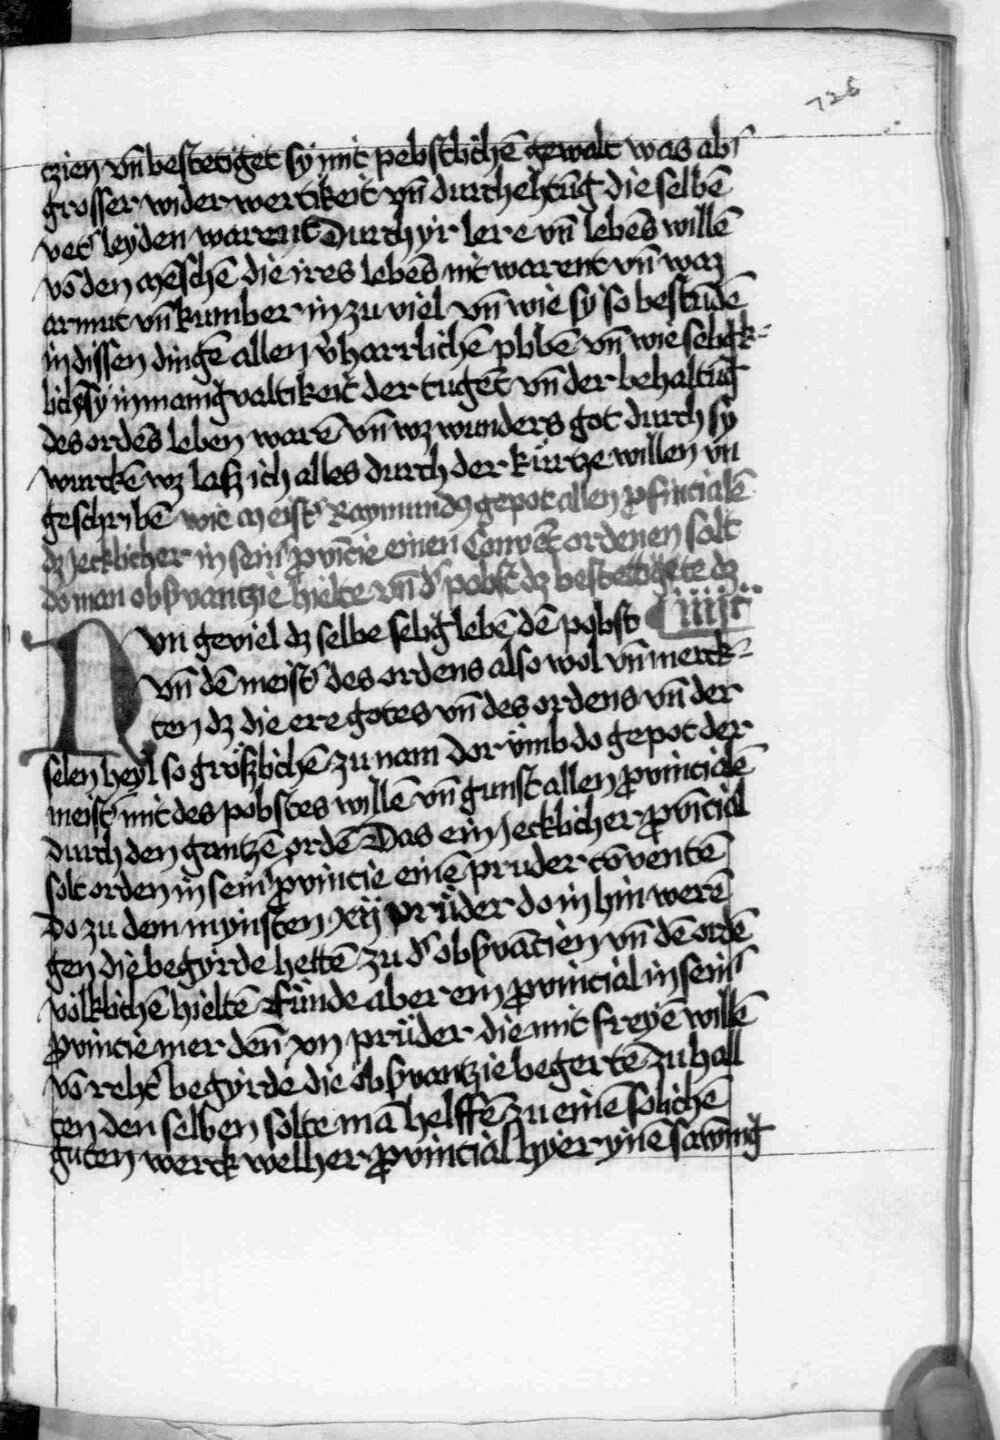 726
tzien vn̄ bestetiget sy mit pebstlichē gewalt was abʾ
grosser wider wertikeit vn̄ durchehtūg die selbē
vetʾ leyden warent Durch yr lere vn̄ lebēs willē
vō den mēschē die ires lebēs nit warent vn̄ waz
armut vn̄ kumber in zu viel vn̄ wie sy so bestūdē
in dissen dingē allen vʾharrlichē plibē vn̄ wie selig-
lichē sy in manigʾvaltikeit der tugēt vn̄ der behaltūg
des ordēs leben warē vn̄ wz wunders got durch sy
wurckē wz lasz ich alles durch der kürtze willen vn
geschribē wie meistʾ Raymundꝯ gepot allen pͦfincialē
dz Jecklicher in seinʾ pͦvīcie einen Convēt ordenen solt
do man obsʾvantzie hielte vn̄ dʾ pobst dz bestetigete dz
Nvn geviel dz selbe seligʾ lebē dē pobst C iiij c̄
vn̄ dē meistʾ des ordens also wol vn̄ merck-
ten dz die ere gotes vn̄ des ordens vn̄ der
selen heyl so gröszlichē zu nam dor vmb do gepot der
meistʾ mit des pobstes willē vn̄ gunst allen pͦvincialē
durch den gantzē ordē Das ein Jecklicher pͦvīcial
solt orden in seinʾ pͦvincie einē pruder cōventē
do zu dem mynsten xij prüder do in hin werē
gen die begyrde hettē zu dʾ obsʾvācien vn̄ dē ordē
völklichē hieltē Fünde aber ein pͦvincial in seinʾ
pͦvincie mer denn̄ xij prüder die mit freyē willē
vō rehtʾ begyrde die obsʾvantzie begertē zu hall
ten den selben solte mā helffē zu einē solichē
guten werck welher pͦvincial hyer ynē sawmig